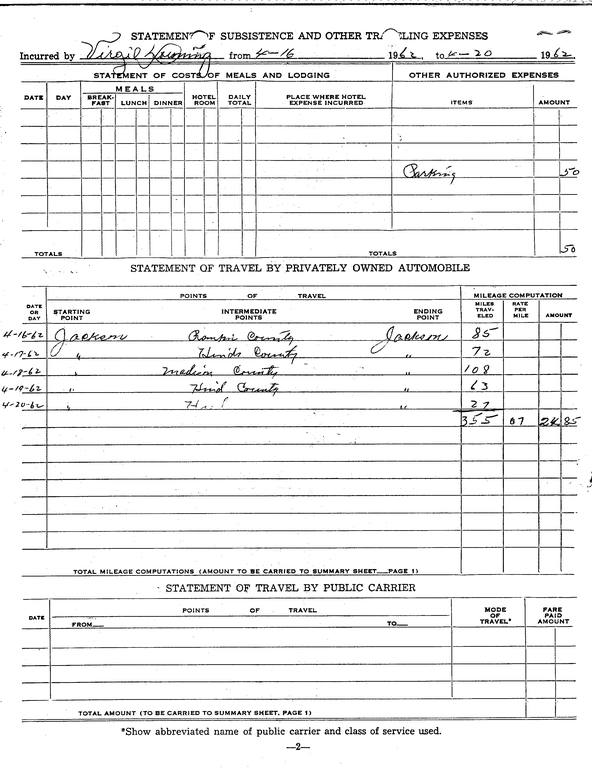 STATEMENT OF SUBSISTENCE AND OTHER TRAVELING EXPENSES
Incurred by Virgil Downing from 4-16 1962, to 4-20 1962
STATEMENT OF COSTS OF MEALS AND LODGING OTHER AUTHORIZED EXPENSES
DATE DAY MEALS BREAK-FAST LUNCH DINNER HOTEL ROOM DAILY TOTAL PLACE WHERE HOTEL EXPENSE INCURRED ITEMS AMOUNT
Parking 50
TOTALS TOTALS 50
STATEMENT OF TRAVEL BY PRIVATELY OWNED AUTOMOBILE
DATE OR DAY POINTS OF TRAVEL MILEAGE COMPUTATION
STARTING POINT INTERMEDIATE POINTS ENDING POINT MILES TRAV-ELED RATE PER MILE AMOUNT
4-16-62 Jackson County Jackson 85
4-17-62 " Hinds County " 72
4-18-62 Madison County " 108
4-19-62 " Hind County " 63
4-20-62 " " 27
355 07 24 85
TOTAL MILEAGE COMPUTATIONS (AMOUNT TO BE CARRIED TO SUMMARY SHEET__PAGE 1)
STATEMENT OF TRAVEL BY PUBLIC CARRIER
DATE POINTS OF TRAVEL MODE OF TRAVEL* FARE PAID AMOUNT
FROM__ TO__
TOTAL AMOUNT (TO BE CARRIED TO SUMMARY SHEET, PAGE 1)
*Show abbreviated name of public carrier and class of service used.
—2—